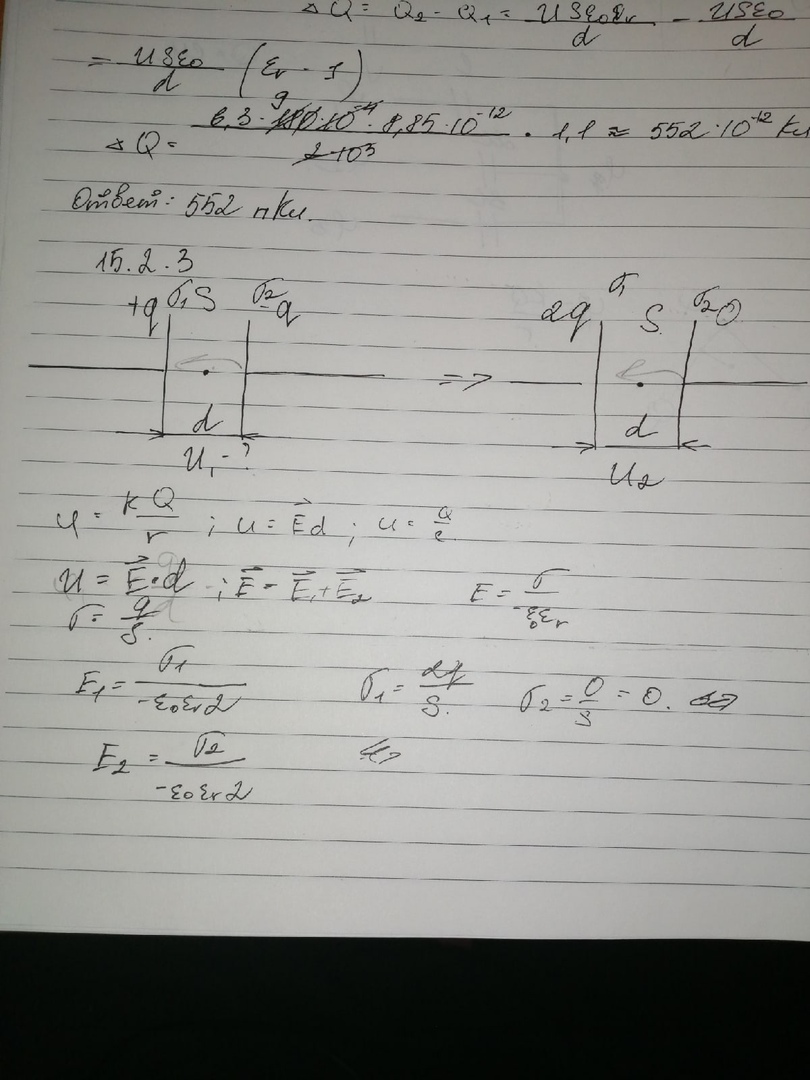 △Q = Q₂ - Q₁ = USε₀εᵣ/d - USε₀/d
= USε₀/d (εᵣ - 1)
△Q = 6,3 · 9 · 8,85·10⁻¹² / 2 · 1,1 ≈ 552·10⁻¹² Кл
Ответ: 552 пКл.
15.2.3
+q σ₁ S σ₂ -q 2q σ₁ S σ₂ 0
=>
d d
U₁ - ? U₂
φ = kQ/r ; U = E⃗d ; U = Q/c
U = E⃗·d ; E⃗ = E⃗₁ + E⃗₂ E = σ/-ε₀εᵣ
σ = q/S.
E₁ = σ₁/-ε₀εᵣ2 σ₁ = 2q/S. σ₂ = 0/S = 0.
E₂ = σ₂/-ε₀εᵣ2